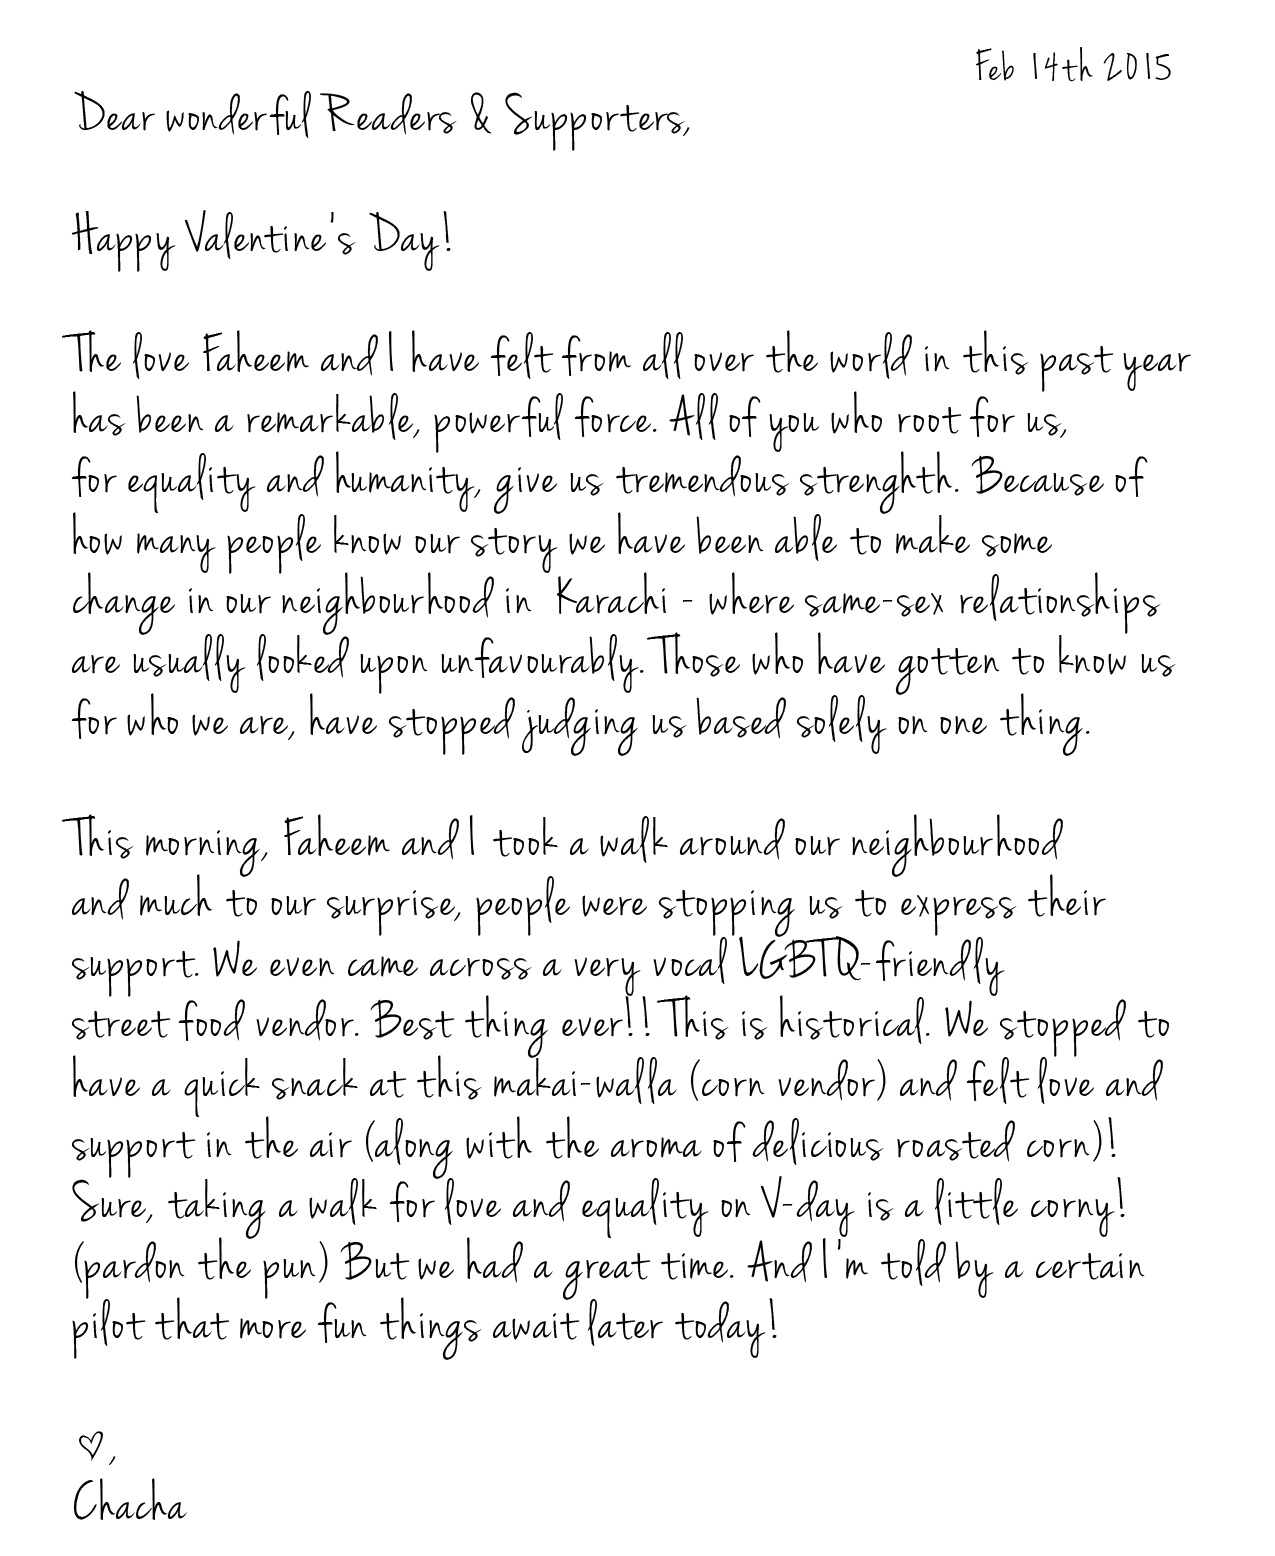 Feb 14th 2015
Dear wonderful Readers & Supporters,
Happy Valentine's Day!
The love Faheem and I have felt from all over the world in this past year
has been a remarkable, powerful force. All of you who root for us,
for equality and humanity, give us tremendous strenghth. Because of
how many people know our story we have been able to make some
change in our neighbourhood in Karachi - where same-sex relationships
are usually looked upon unfavourably. Those who have gotten to know us
for who we are, have stopped judging us based solely on one thing.
This morning, Faheem and I took a walk around our neighbourhood
and much to our surprise, people were stopping us to express their
support. We even came across a very vocal LGBTQ-friendly
street food vendor. Best thing ever!! This is historical. We stopped to
have a quick snack at this makai-walla (corn vendor) and felt love and
support in the air (along with the aroma of delicious roasted corn)!
Sure, taking a walk for love and equality on V-day is a little corny!
(pardon the pun) But we had a great time. And I'm told by a certain
pilot that more fun things await later today!
♡,
Chacha